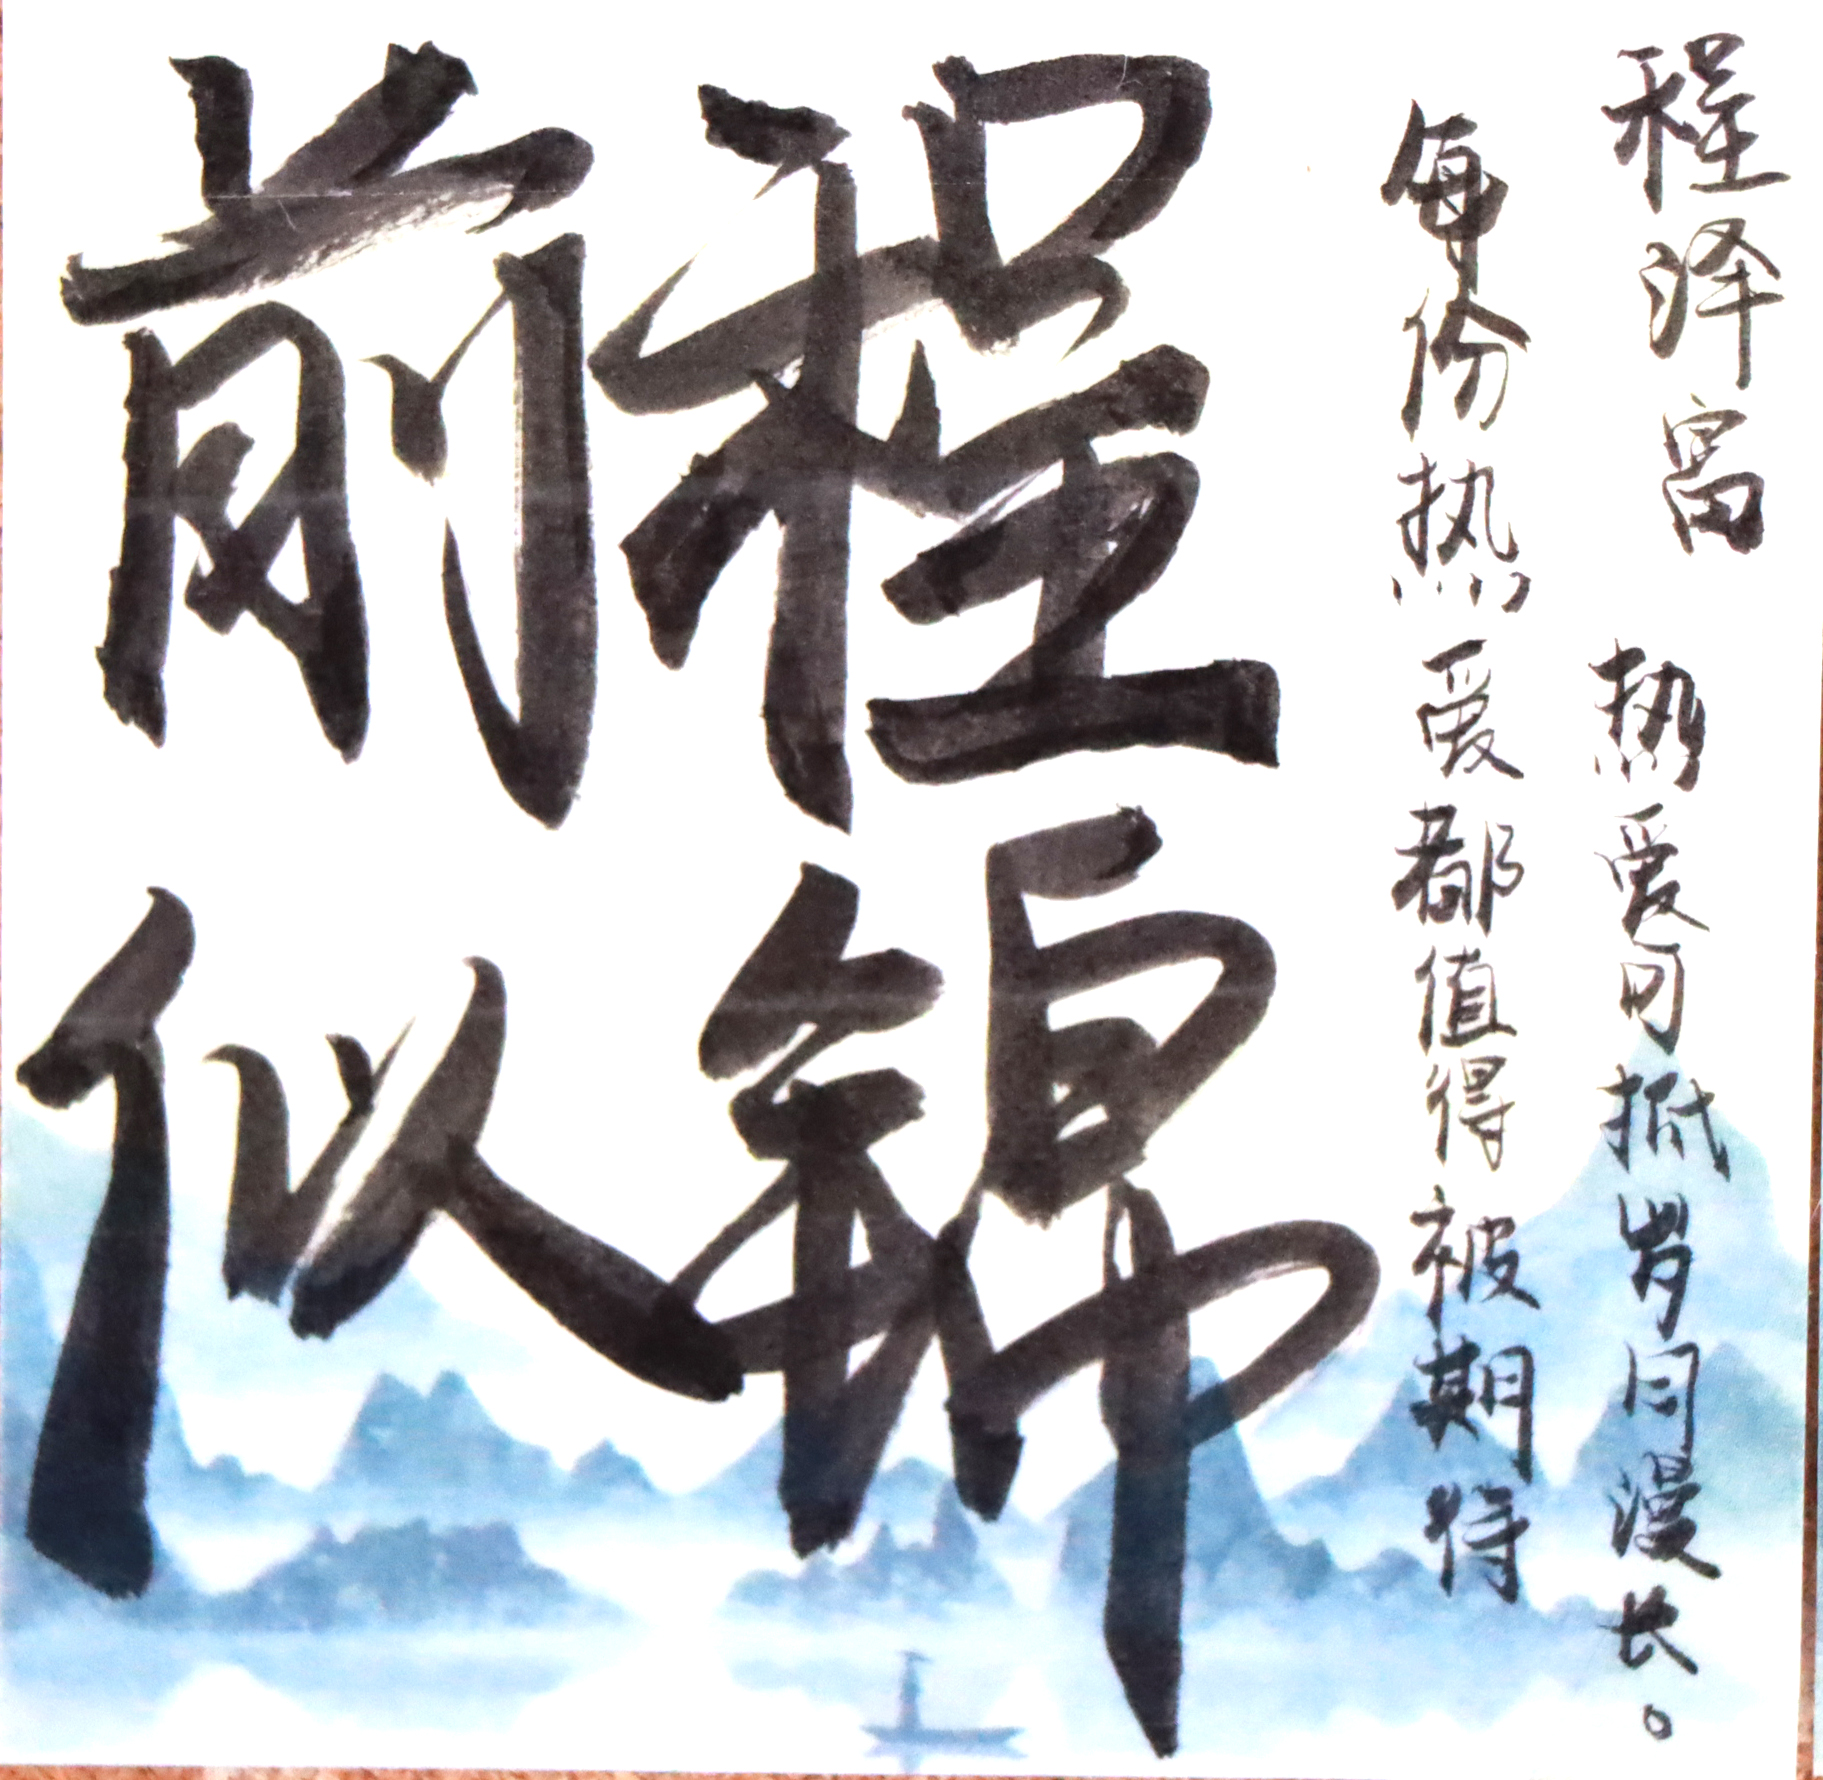 前程
似锦
程泽富
热爱可抵岁月漫长。
每份热爱都值得被期待